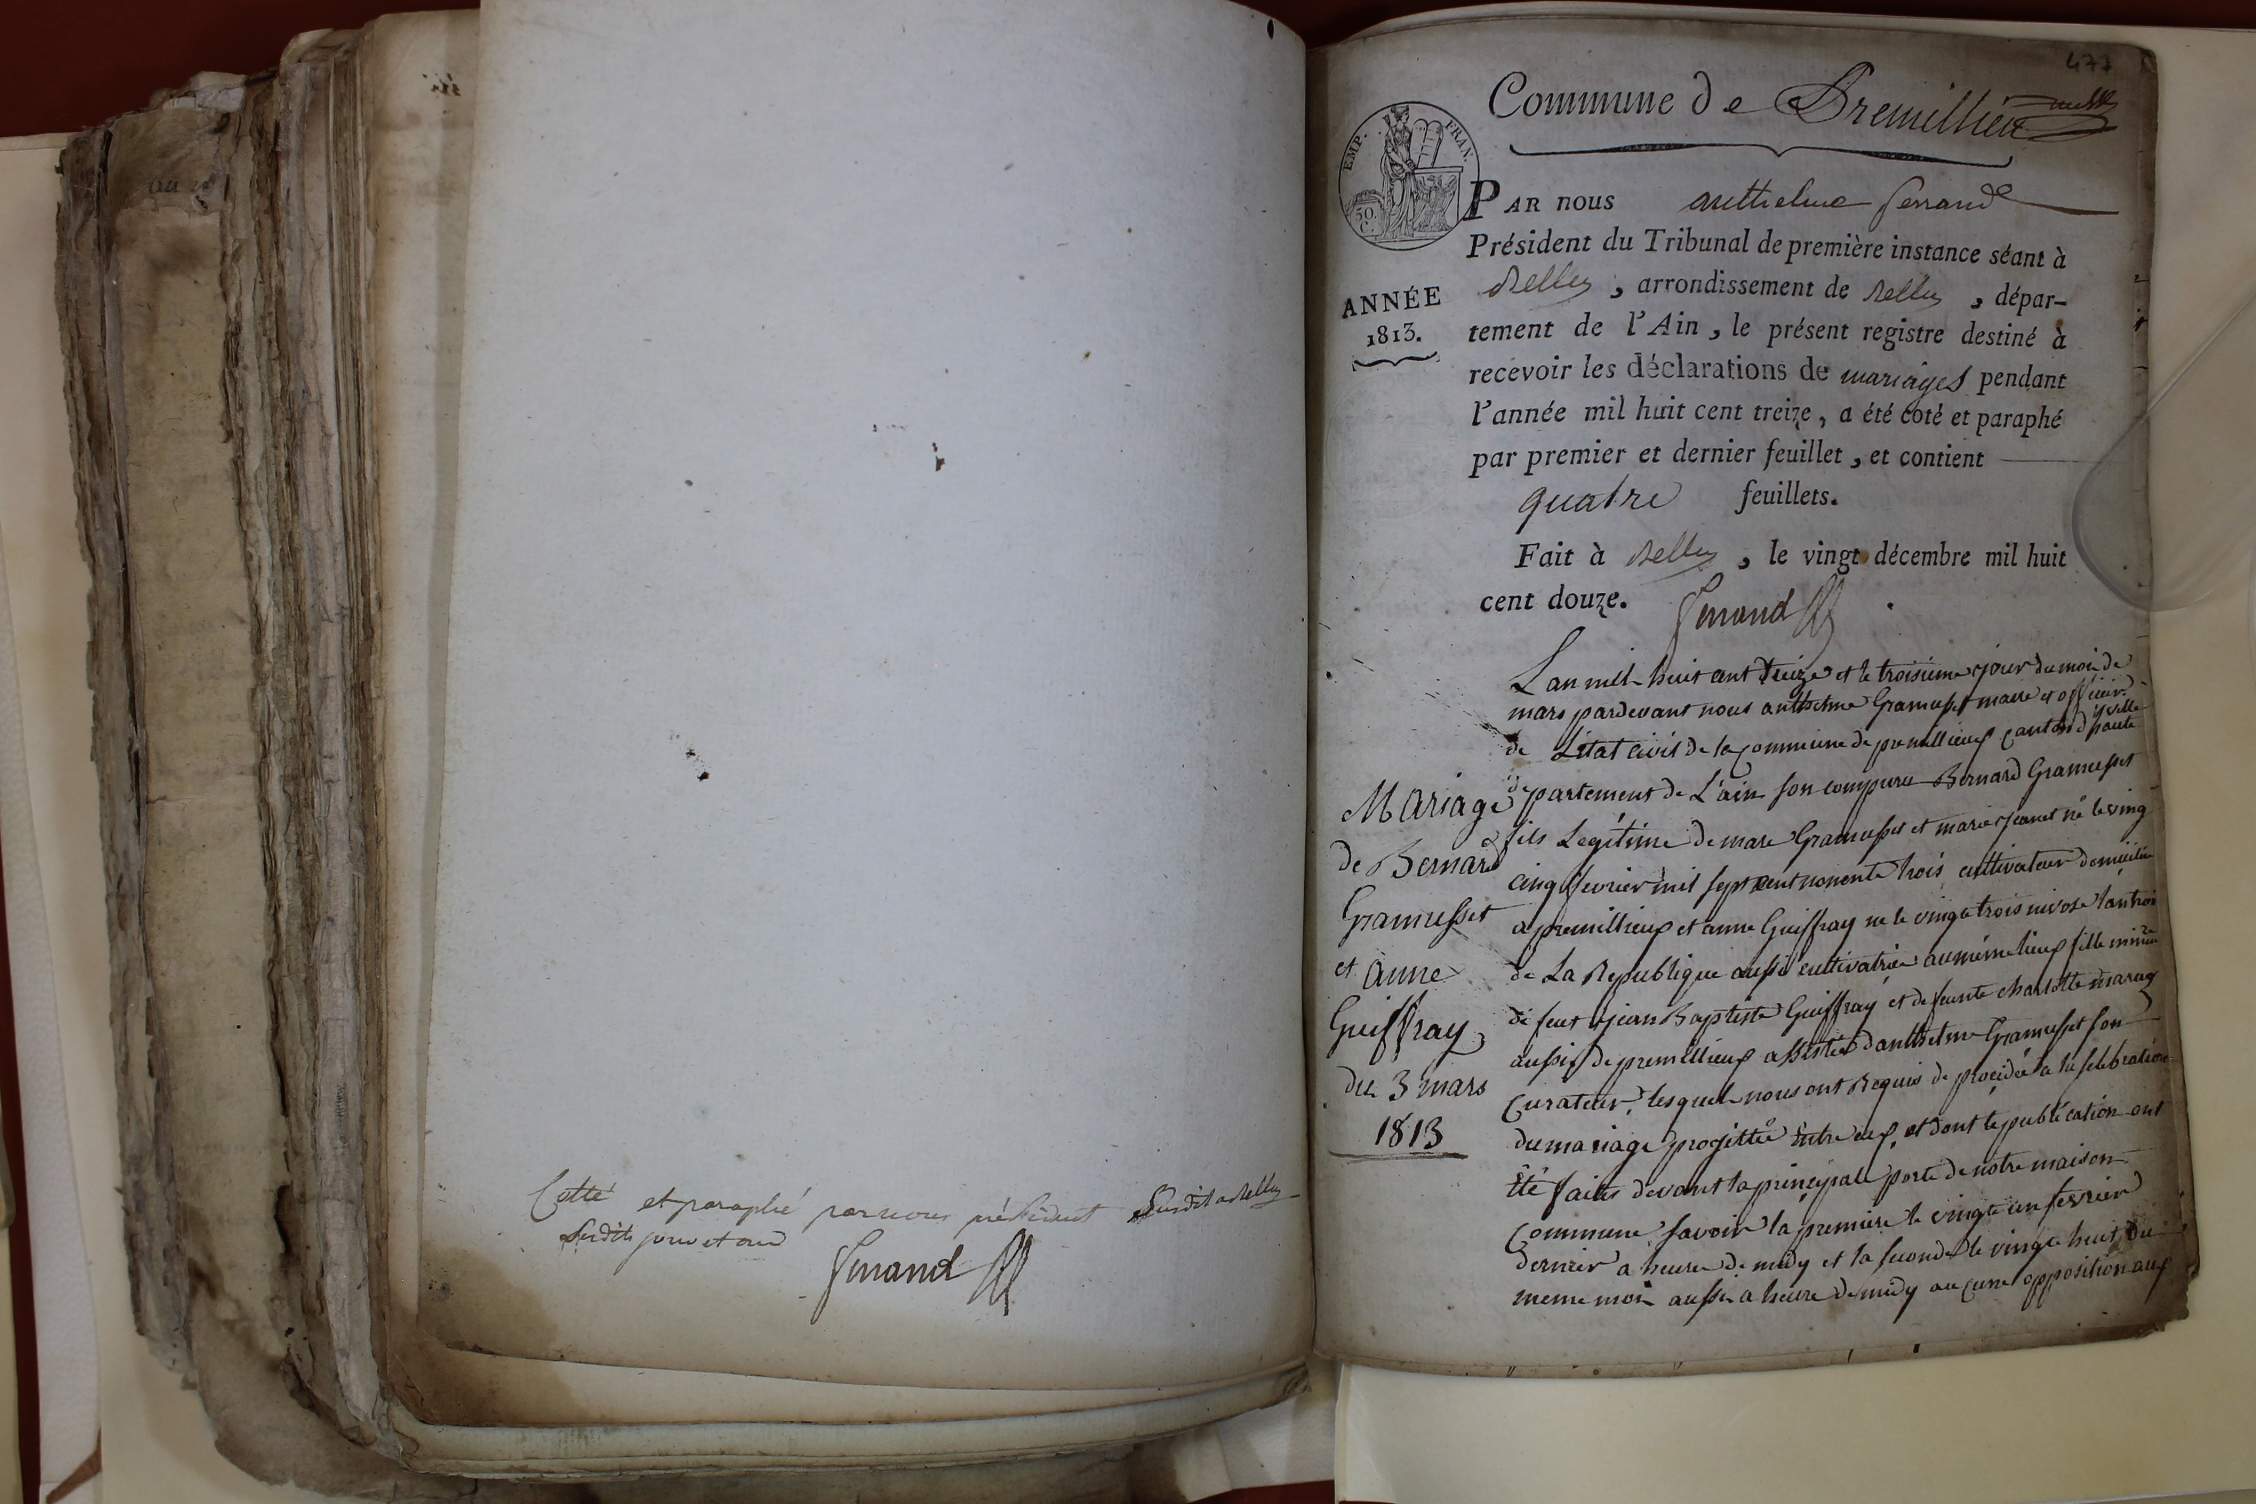 Cotté et paraphé par nous président susdit a Belley
susdits jour et an
Ferrand
477
Commune de Premillieu
EMP. FRAN.
50. C.
PAR nous anthelme ferrand
Président du Tribunal de première instance séant à
Belley, arrondissement de Belley, dépar-
tement de l'Ain, le présent registre destiné à
recevoir les déclarations de mariages pendant
l'année mil huit cent treize, a été coté et paraphé
par premier et dernier feuillet, et contient
quatre feuillets.
Fait à Belley, le vingt décembre mil huit
cent douze.
Ferrand
ANNÉE
1813.
Mariage
de Bernard
Gramusset
et anne
Guiffray
du 3 mars
1813
L'an mil huit cent treize et le troisieme jour du mois de
mars pardevant nous anthelme Gramusset maire et officier
de L'état civil de la commune de premillieux canton d'haute
ville
département de L'ain son comparu Bernard Gramusset
fils Legitime de marc Gramusset et marie Jeanet né le vingt
cinq fevrier mil sept cent nonente trois cultivateur domicilié
a premillieux et anne Guiffray ne le vingt trois nivose l'an trois
de La Republique aussi cultivatrice au même lieux fille mineure
de feut jean Baptiste Guiffray et de feunte charlotte
aussi de premillieux assistée d'anthelme Gramusset son
Curateur, lesquels nous ont Requis de procédée a la selebration
du mariage progétté Entre eux, et dont les publication ont
Eté faites devant la principale porte de notre maison
Commune, savoir la premiere le vingt un fevrier
dernier a heure de midy et la seconde le vingt huit du
meme mois aussi a heure de midy aucune opposition aux